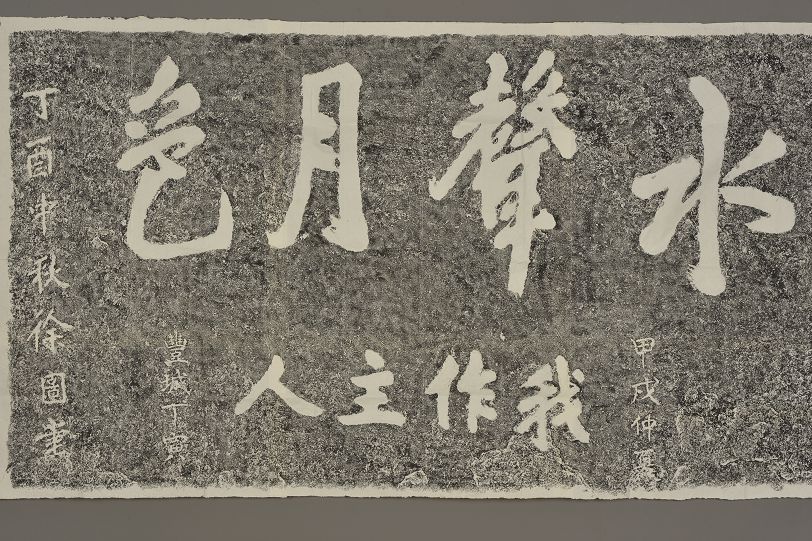 水聲月色
丁酉中秋徐圖書
甲戌仲夏
我作主人
豐城丁寅